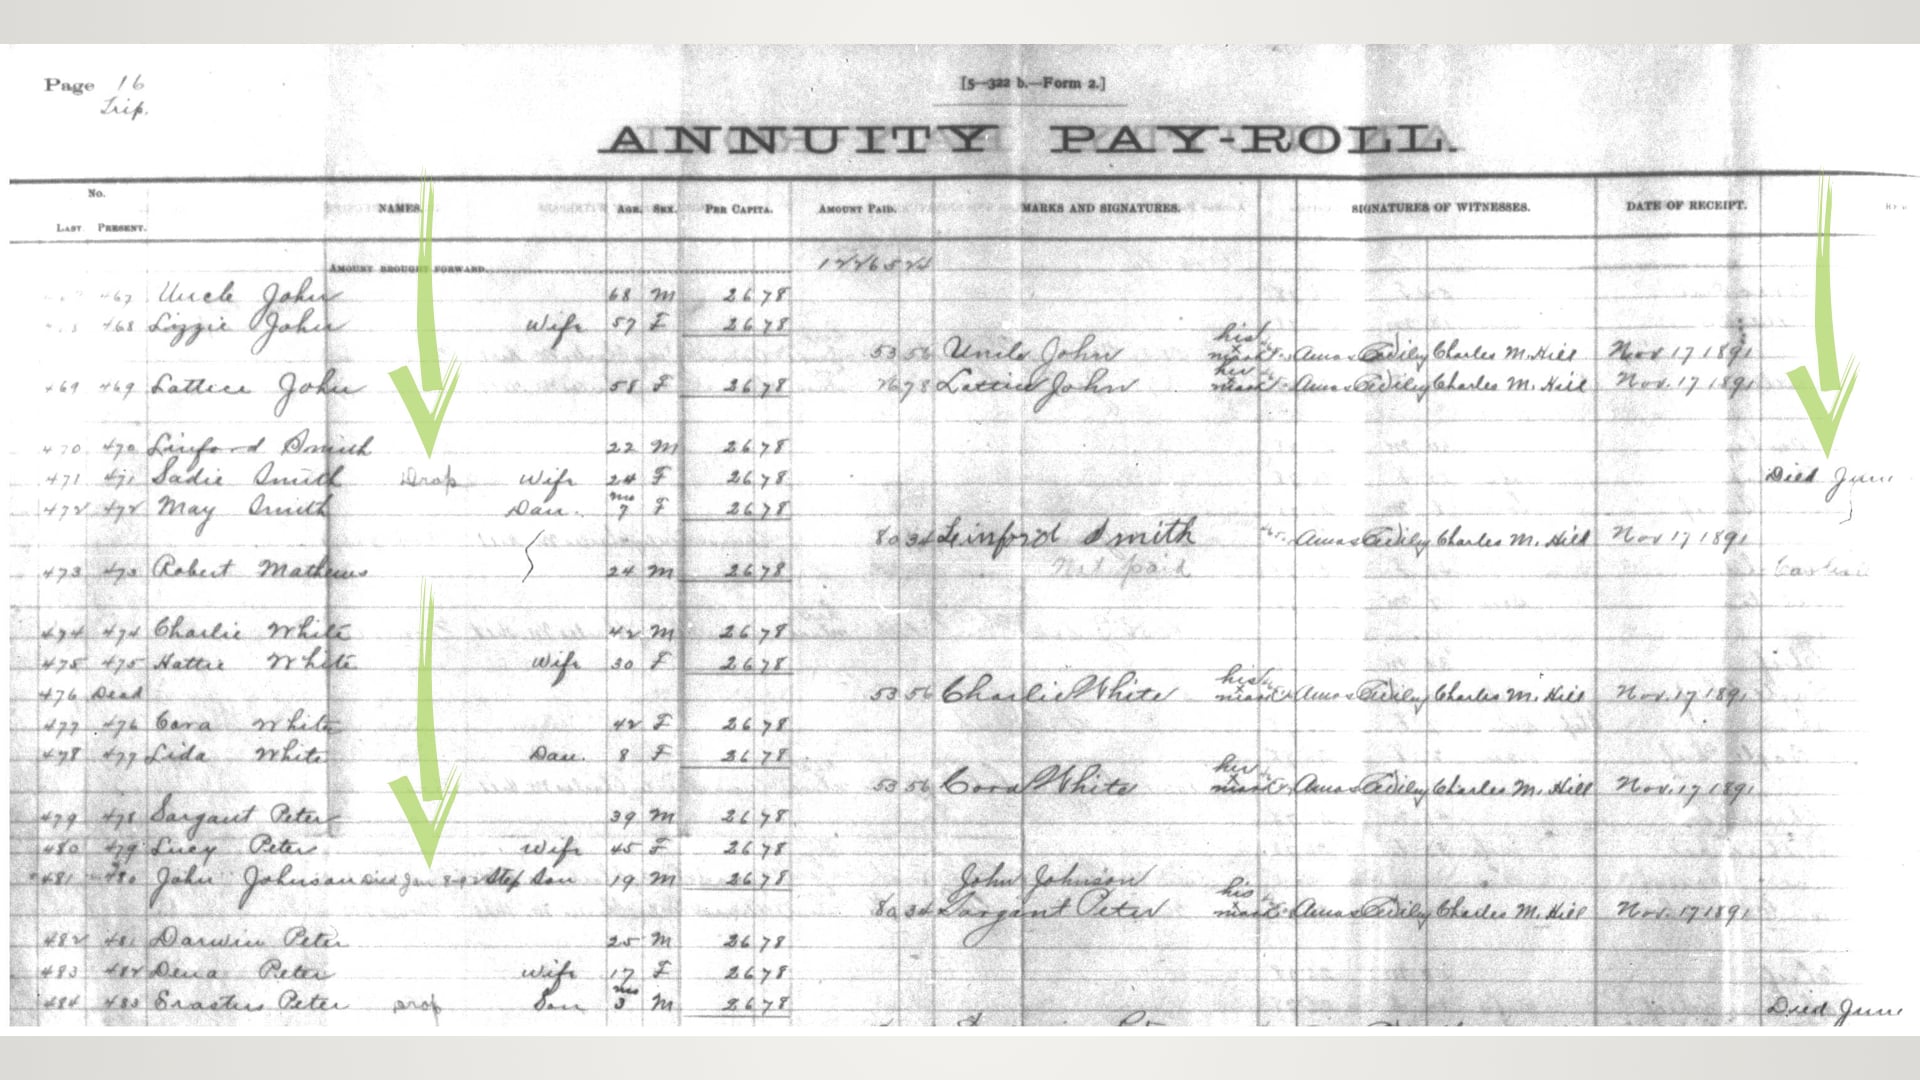 Page 16
Trip.
[5—322 b.—Form 2.]
ANNUITY PAY-ROLL.
No.
LAST PRESENT. NAMES. AGE. SEX. PER CAPITA. AMOUNT PAID. MARKS AND SIGNATURES. SIGNATURES OF WITNESSES. DATE OF RECEIPT.
AMOUNT BROUGHT FORWARD
467 Uncle John 68 M 26 78
468 Lizzie John Wife 57 F 26 78
53 56 Uncle John his x mark Charles M. Hill Nov 17 1891
469 469 Lattice John 58 F 26 78 26 78 Lattice John her x mark Charles M. Hill Nov. 17 1891
470 470 Linford Smith 22 M 26 78
471 471 Sadie Smith Drop Wife 24 F 26 78 Died June
472 472 May Smith Dau. mos 7 F 26 78
80 34 Linford Smith Charles M. Hill Nov 17 1891
473 473 Robert Mathews 24 M 26 78 Not paid
474 474 Charlie White 42 M 26 78
475 475 Hattie White Wife 30 F 26 78
476 Dead 53 56 Charlie White his x mark Charles M. Hill Nov. 17 1891
477 476 Cora White 42 F 26 78
478 477 Lida White Dau. 8 F 26 78
53 56 Cora White her x mark Charles M. Hill Nov. 17 1891
479 478 Sargant Peter 39 M 26 78
480 479 Lucy Peter Wife 45 F 26 78
481 480 John Johnson Died Jan Step Son 19 M 26 78 John Johnson
80 34 Sargant Peter his x mark Charles M. Hill Nov. 17 1891
482 481 Darwin Peter 25 M 26 78
483 482 Dena Peter Wife 17 F 26 78
484 483 Erastus Peter Drop Son mos 3 M 26 78 Died June